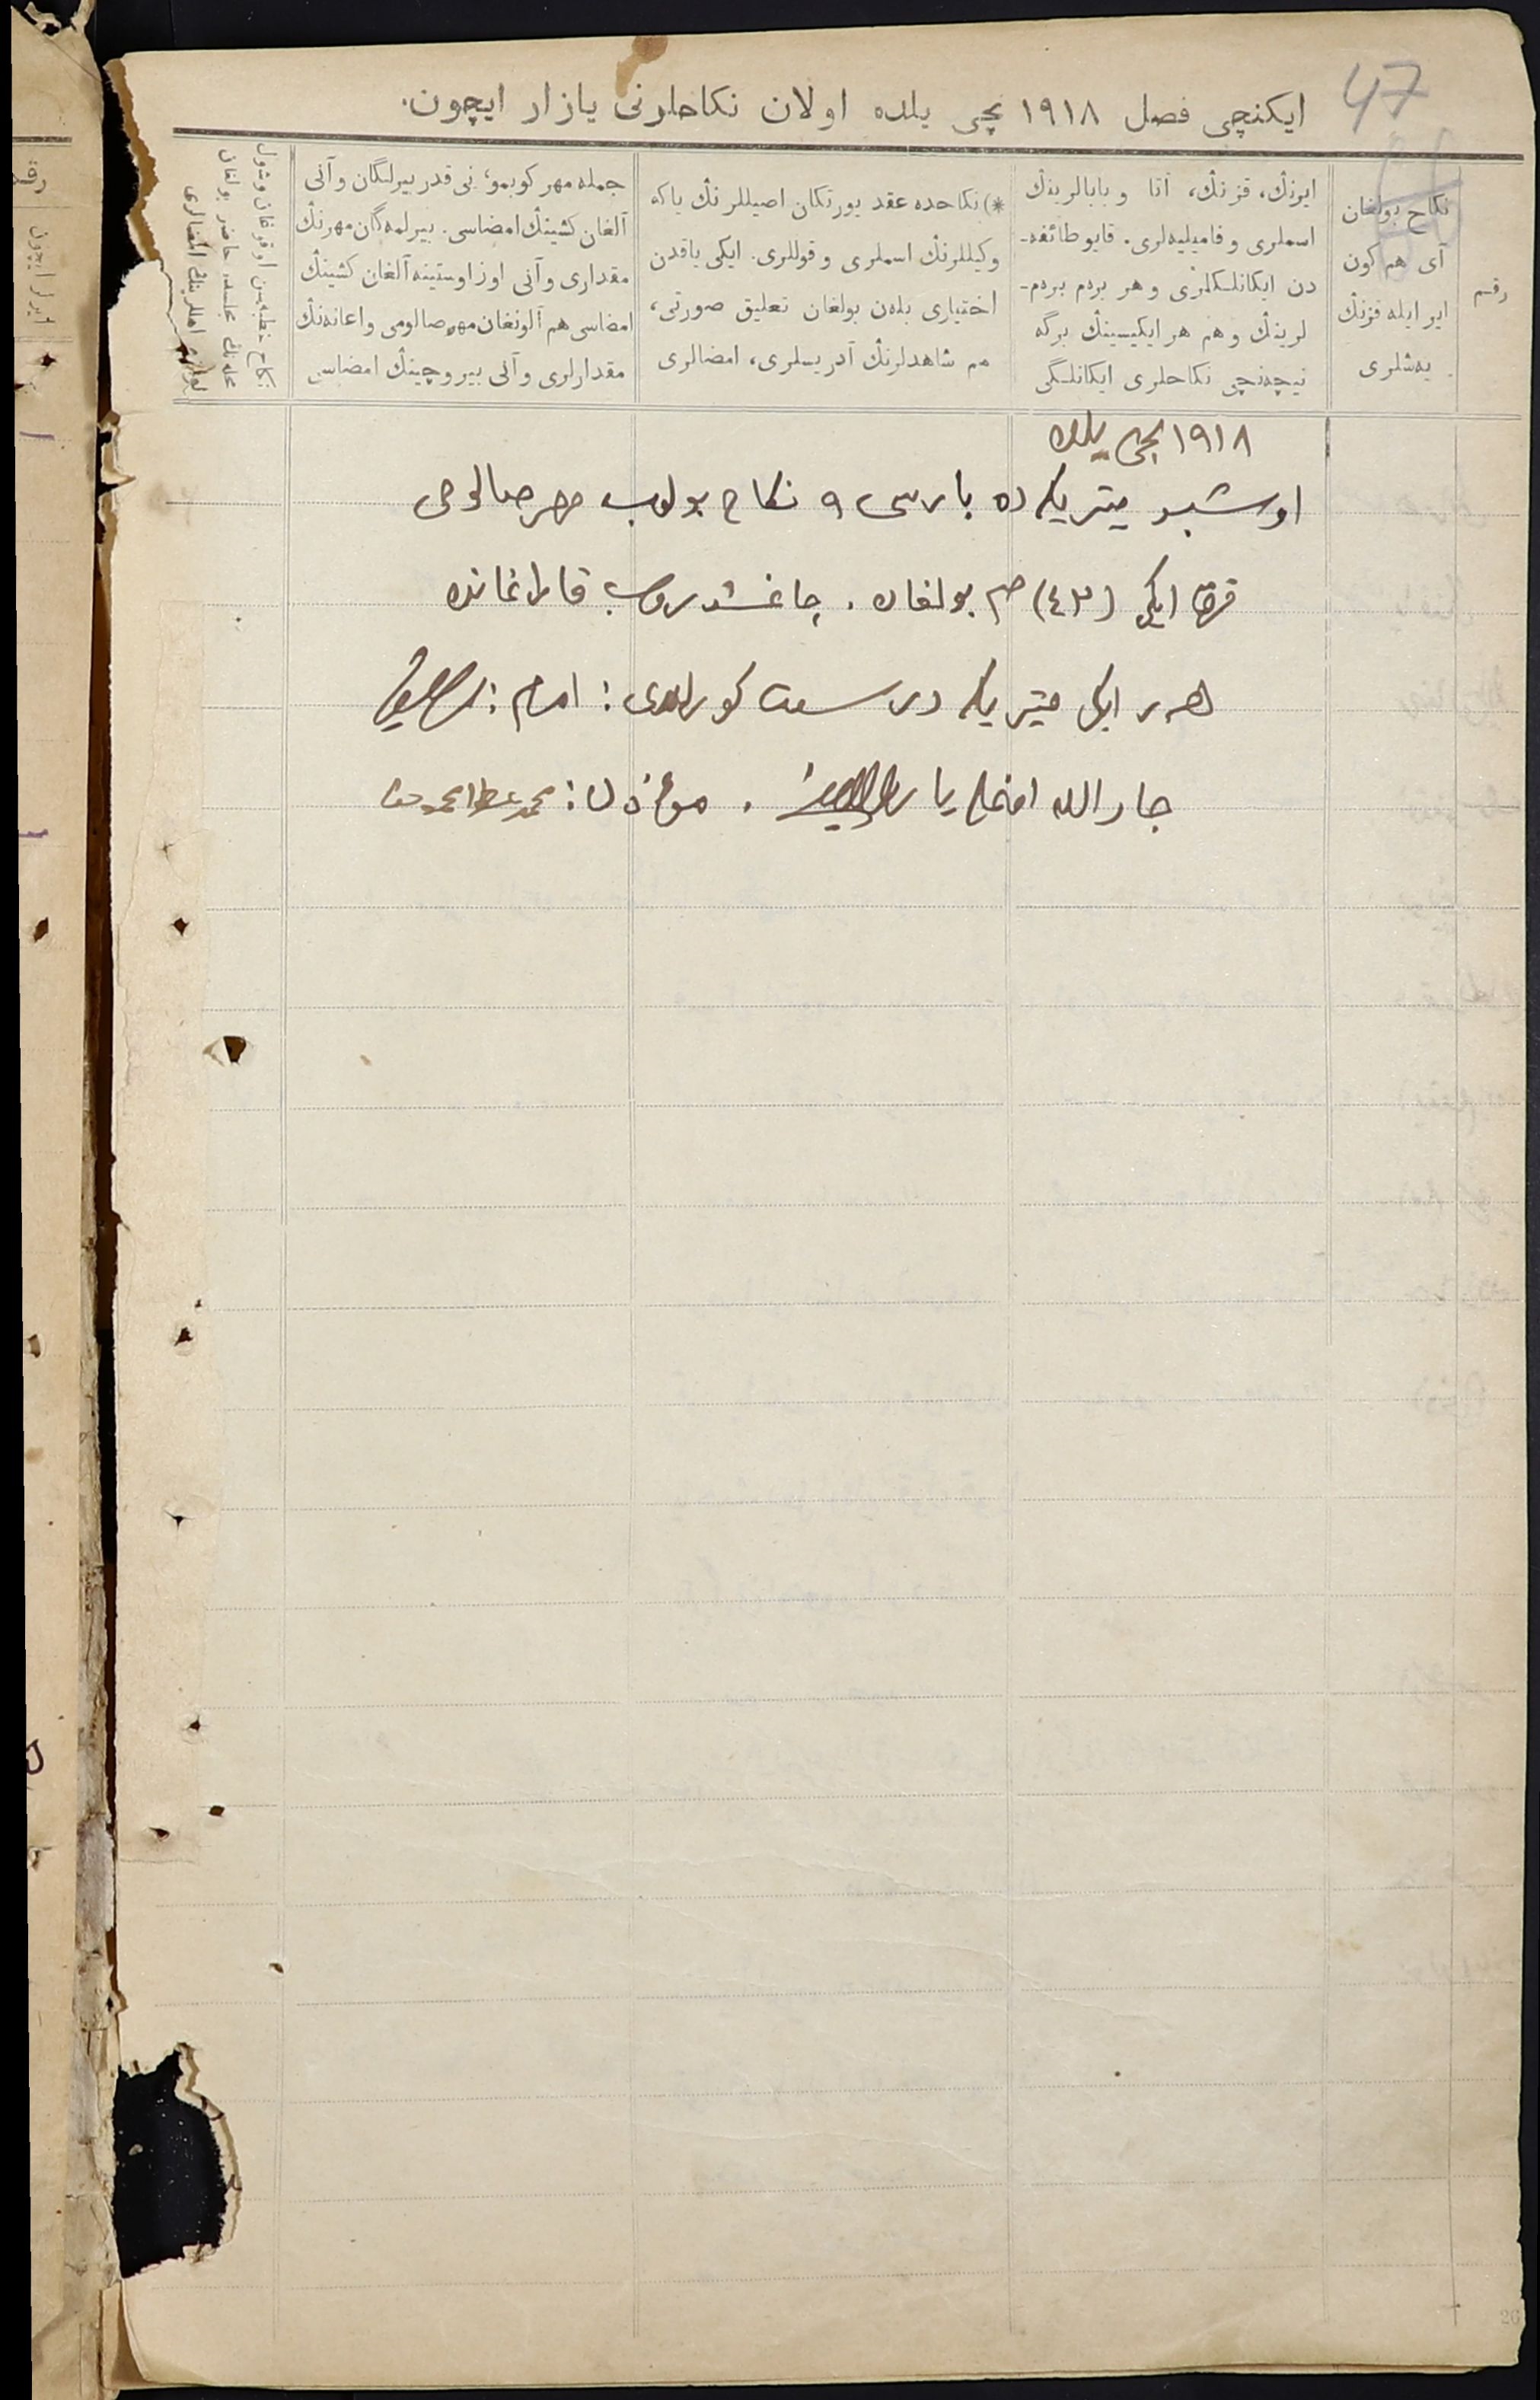 47
ایکنچی فصل ۱۹۱۸ نچی یلده اولان نکاحلرنی یازار ایچون.
رقم
نکاح بولغان
آی هم کون
ایر ایله قزنڭ
یەشلری
ایرنڭ، قزنڭ، آتا و بابالرینڭ
اسملری و فامیلیەلری. قایو طائفه‌-
دن ایکانلکلری و هر بردم بردم-
لرینڭ و هم هر ایکیسینڭ برگه
نیچەنچی نکاحلری ایکانلگی
*) نکاحده عقد یورتکان اصیللرنڭ یاکه
وکیللرنڭ اسملری و قوللری. ایکی یاقدن
اختیاری بلەن بولغان تعلیق صورتی،
هم شاهدلرنڭ آدریسلری، امضالری
جمله مهر کوبمو، نی قدر بیرلگان و آنی
آلغان کشینڭ امضاسی. بیرلمەگان مهرنڭ
مقداری و آنی اوز اوستینه آلغان کشینڭ
امضاسی هم آلونغان مهر صالومی و اعانەنڭ
مقدارلری و آنی بیروچینڭ امضاسی
نکاح خطبەسن اوقوغان و شول
محلەنڭ مجلسده حاضر بولغان
اهللرینڭ امضالری
۱۹۱۸ نچی یلده
اوشبو میتریکه ده بارسی ۹ نکاح بولوب مهر صالومی
قرق ایکی (٤۲) صم بولغان. چاغشدروب قاراغانده
هر ایکی میتریکه درست کورلدی: امام:
جار الله . مؤذن:
رقم
ایرلر ایچون
26